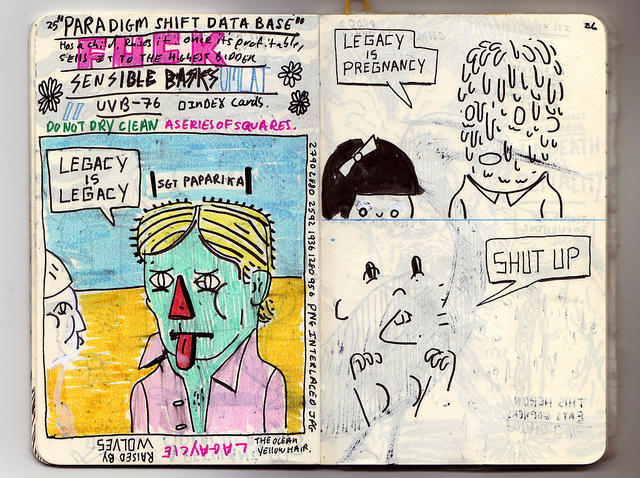 25 "PARADIGM SHIFT DATA BASE"
Has a child, Raises it, once its profitable,
FUCK
SELLS IT TO THE HIGHEST BIDDER
SENSIBLE BASKS
UVB-76 INDEX cards.
DO NOT DRY CLEAN A SERIES OF SQUARES.
LEGACY
IS
LEGACY
SGT PAPARIKA
2592 1936 1280 956 PNG INTERLACED JPG
RAISED BY
WOLVES
LAGAYCIE
THE OCEAN
YELLOW HAIR.
26
LEGACY
IS
PREGNANCY
SHUT UP
THIS HERON